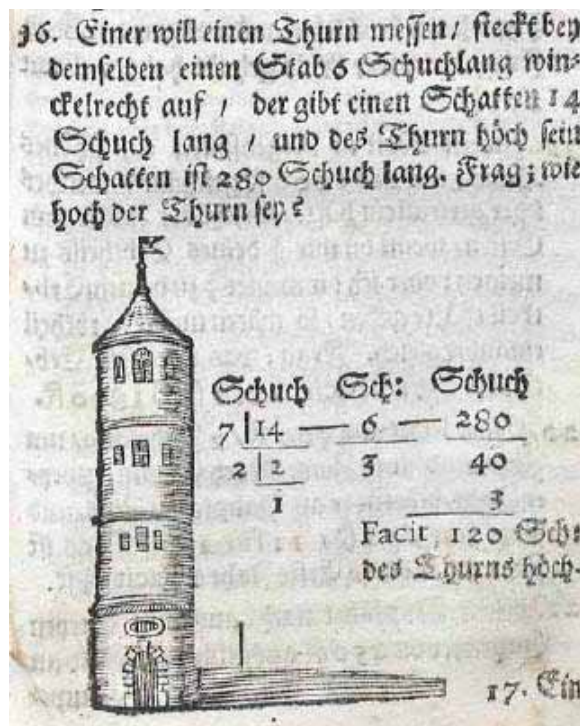 36. Einer will einen Thurn messen / steckt bey
demselben einen Stab 6 Schuchlang win⸗
ckelrecht auf / der gibt einen Schatten 14
Schuch lang / und des Thurn höch sein
Schatten ist 280 Schuch lang. Frag; wie
hoch der Thurn sey?
Schuch Sch: Schuch
7 | 14 — 6 — 280
2 | 2 3 40
1 3
Facit 120 Sch:
des Thurns höch.
17. Ein